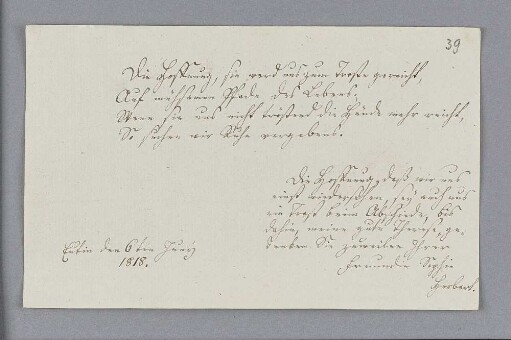 39
Die Hoffnung, sie ward uns zum Troste gereicht,
Auf mühsamen Pfade des Lebens.
Wenn sie uns nicht tröstend die Hände mehr reicht,
So suchen wir Ruhe vergebens.
Die Hoffnung, daß wir uns
einst wiedersehen, sey auch uns
ein Trost beim Abschiede, bis
dahin, meine gute Therese, ge-
denken Sie zuweilen Ihrer
Freundin Sophie
Herbart.
Eutin den 6ten Juny
1818.